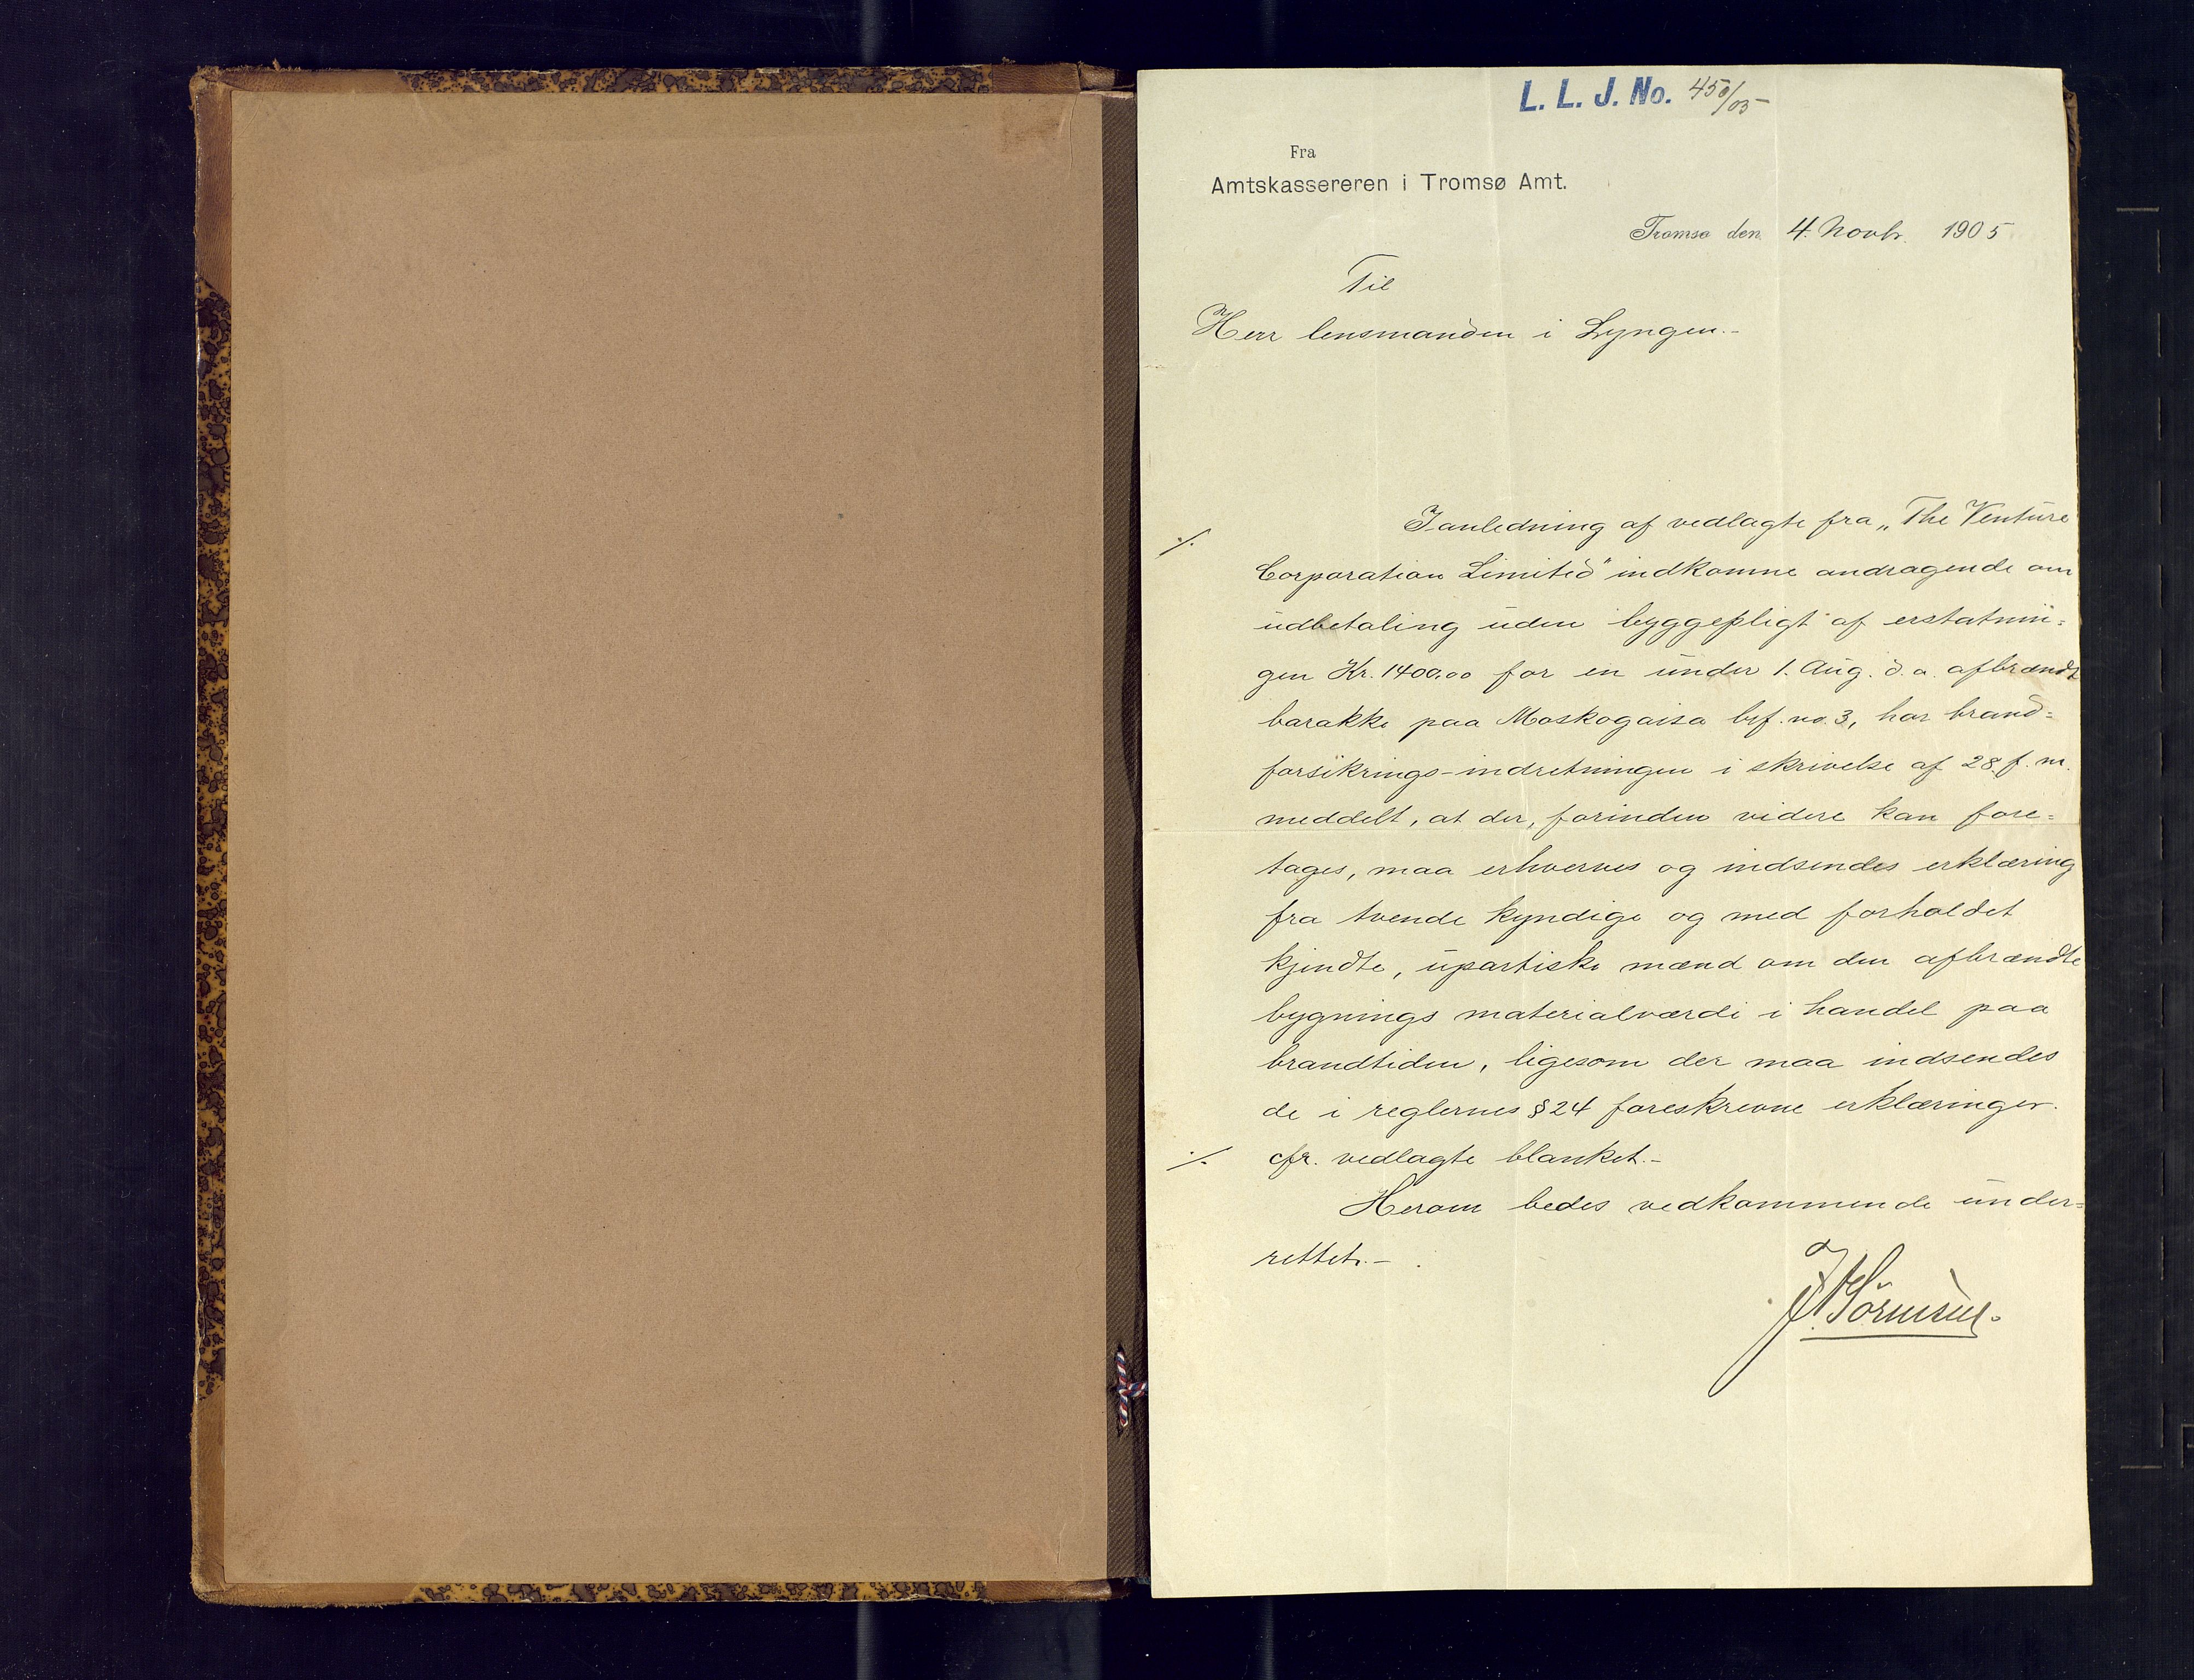 L. L. J. No. 450/05-
Fra
Amtskassereren i Tromsø Amt.
Tromsø den 4. Novbr. 1905
Til
Herr lensmanden i Lyngen.-
./. I anledning af vedlagte fra „The Venture
Corporation Limited" indkomne andragende om
udbetaling uden byggepligt af erstatnin=
gen Kr. 1400,00 for en under 1. Aug. d. a. afbrændt
barakke paa Moskogaisa brf. no. 3, har brand=
forsikrings-indretningen i skrivelse af 28. f. m.
meddelt, at der, forinden videre kan fore=
tages, maa erhverves og indsendes erklæring
fra tvende kyndige og med forholdet
kjendte, upartiske mænd om den afbrændte
bygnings materialværdi i handel paa
brandtiden, ligesom der maa indsendes
de i reglernes § 24 foreskrevne erklæringer.
./. cfr. vedlagte blanket.-
Herom bedes vedkommende under=
rettet.-